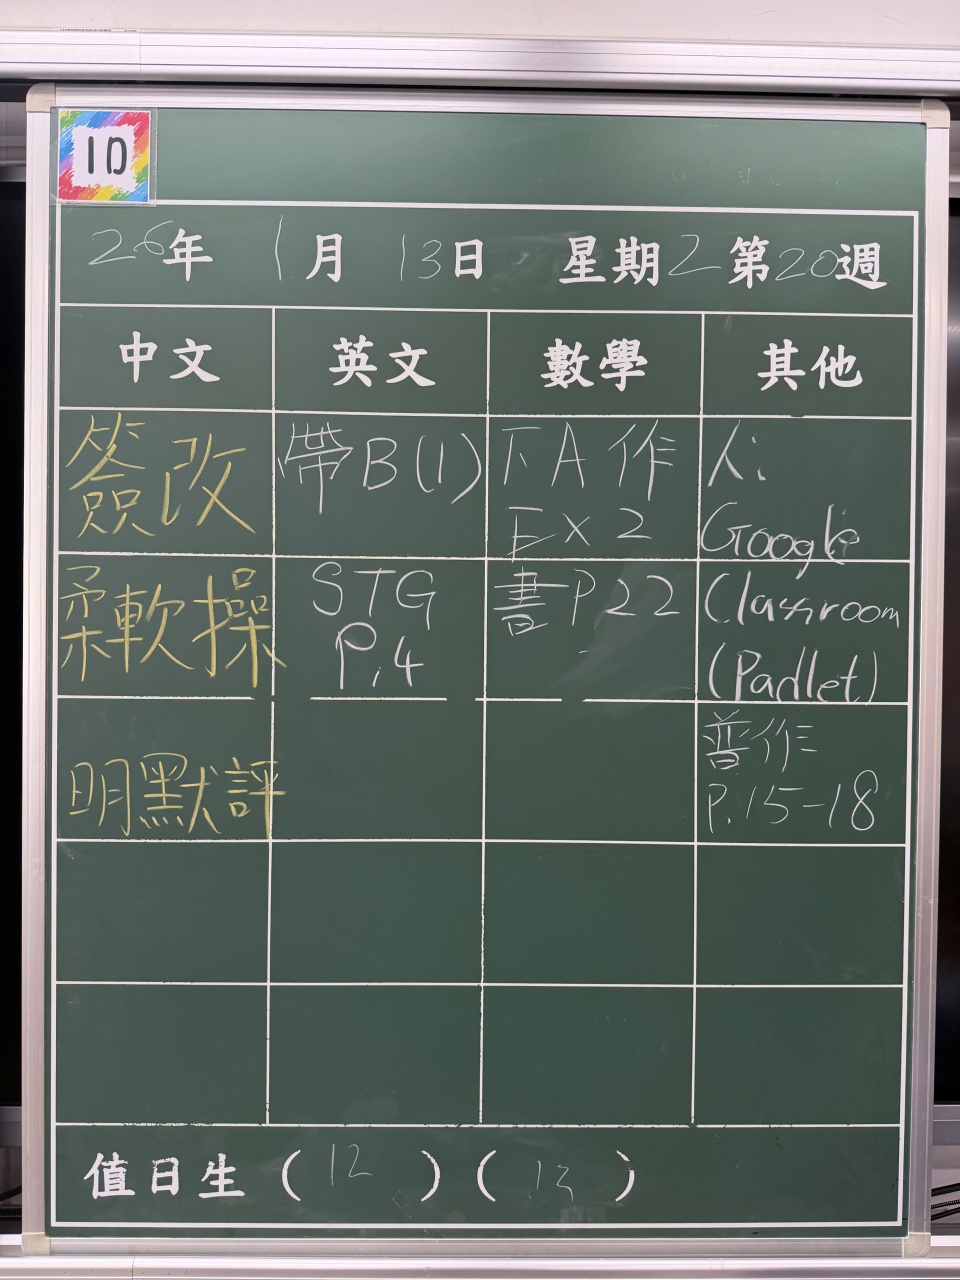 1D
26年 1月 13日 星期2 第20週
中文 英文 數學 其他
簽改
柔軟操
明默評
帶B(1)
STG
P.4
下A作
Ex 2
書P22
人:
Google
Classroom
(Padlet)
普作
P.15-18
值日生 (12) (13)